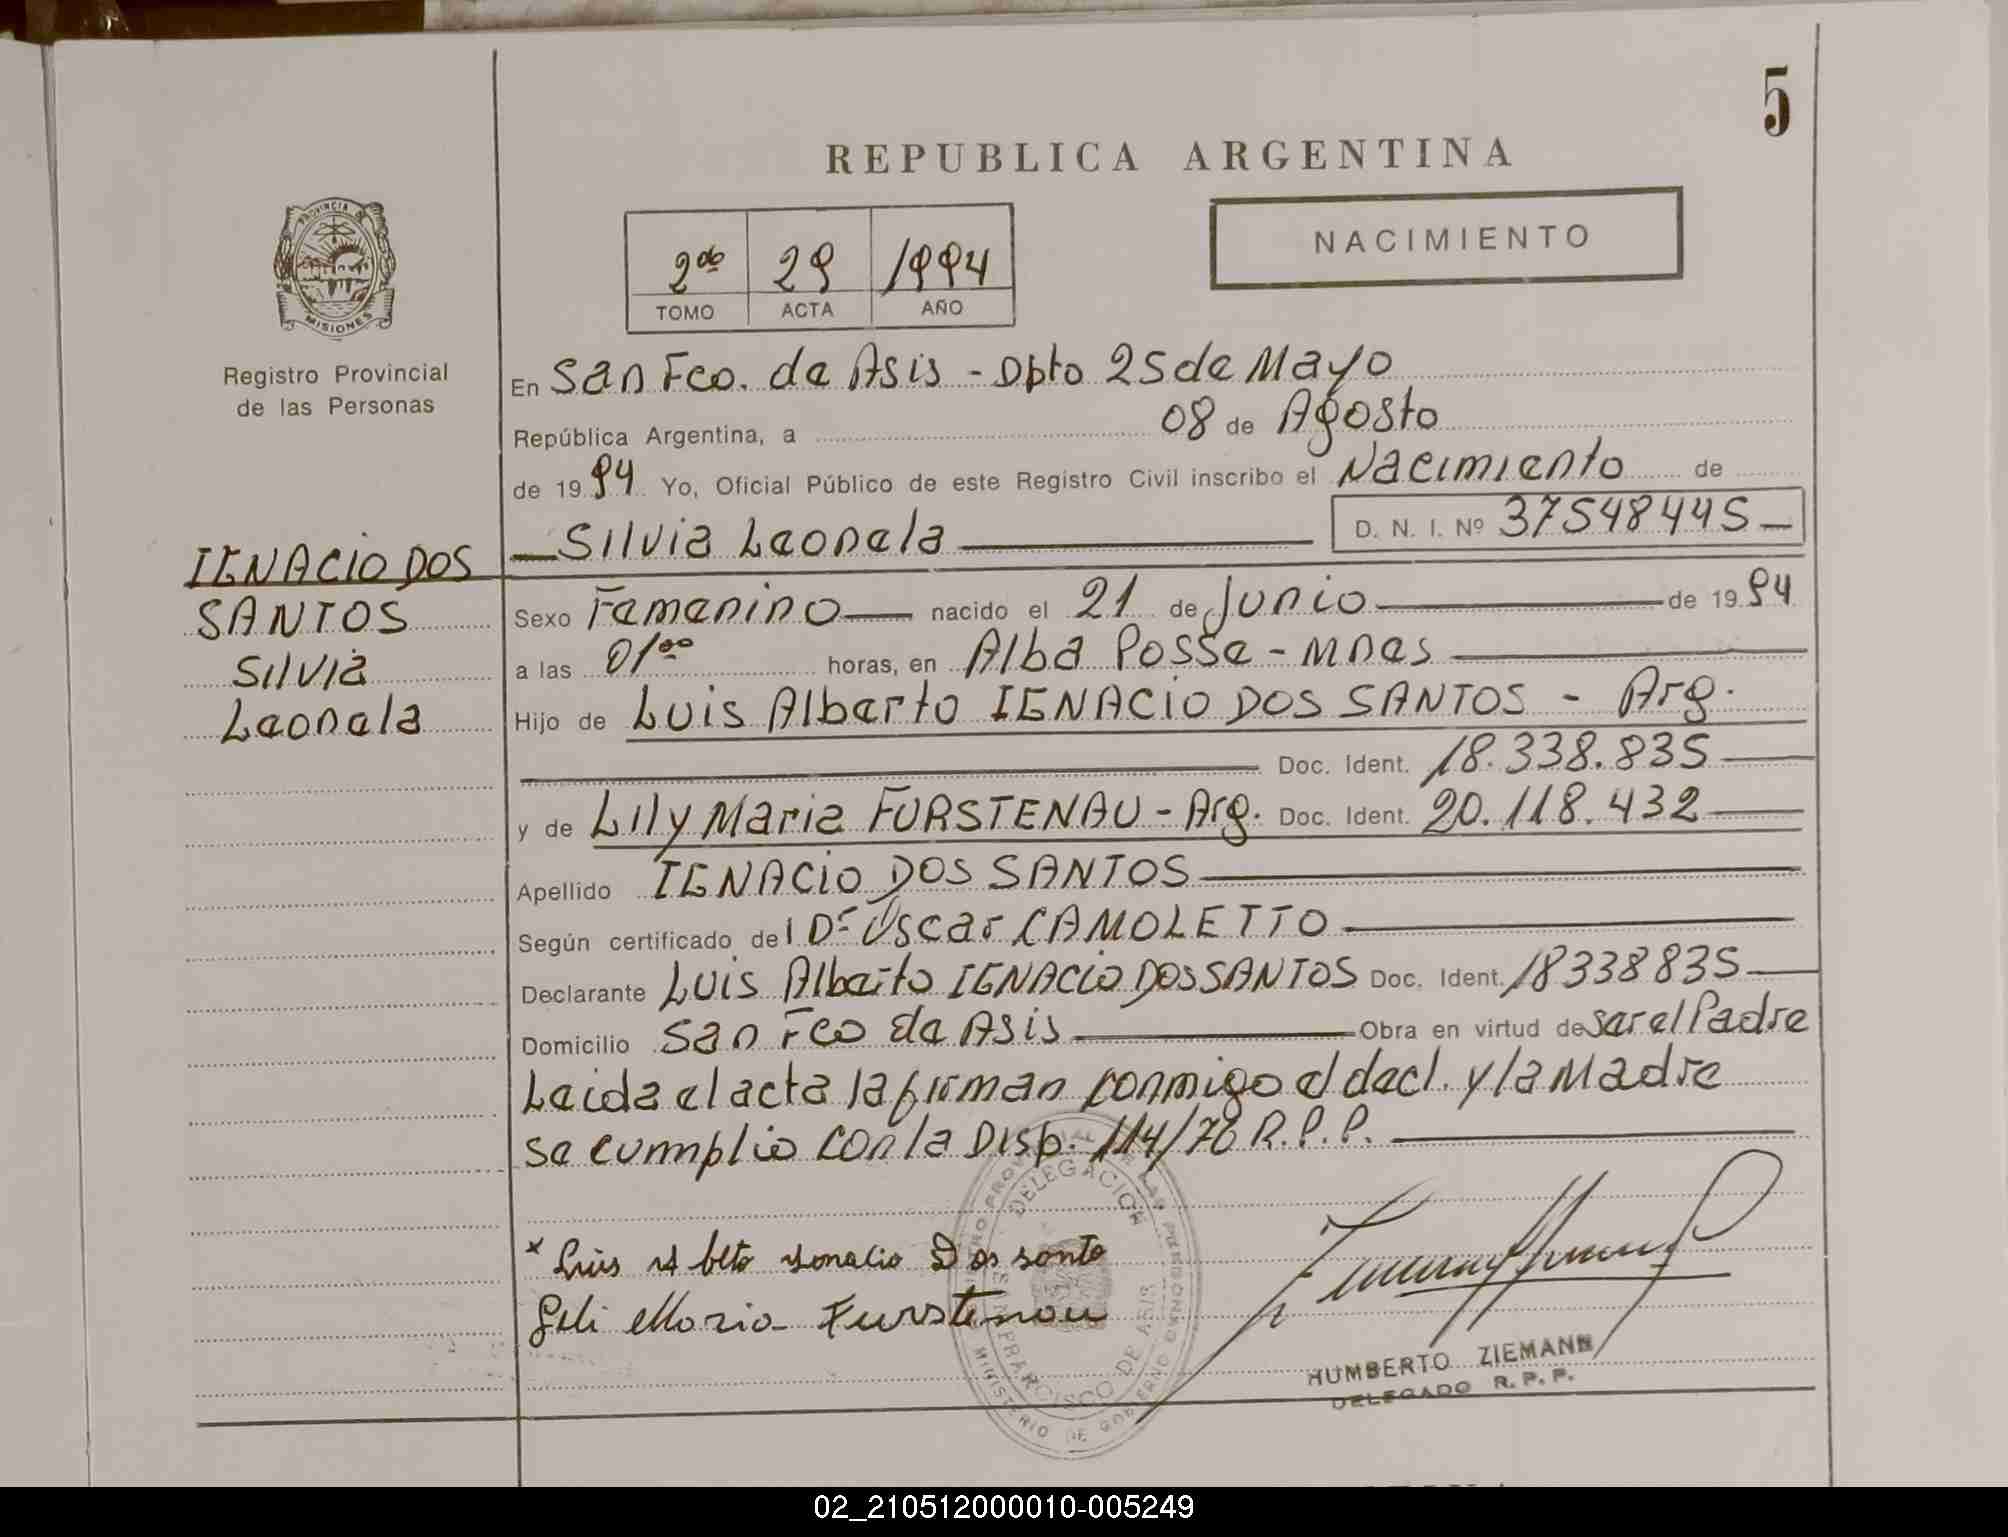 5
REPUBLICA ARGENTINA
NACIMIENTO
2do 29 1994
TOMO ACTA AÑO
PROVINCIA DE
MISIONES
Registro Provincial
de las Personas
En San Fco. de Asis - Dpto 25 de Mayo
República Argentina, a 08 de Agosto
de 1994 Yo, Oficial Público de este Registro Civil inscribo el Nacimiento de
Silvia Leonela D. N. I. Nº 37548445
IGNACIO DOS
SANTOS
Silvia
Leonela
Sexo Femenino nacido el 21 de Junio de 1994
a las 0100 horas, en Alba Posse - Mnes
Hijo de Luis Alberto IGNACIO DOS SANTOS - Arg.
Doc. Ident. 18.338.835
y de Lily Maria FURSTENAU - Arg. Doc. Ident. 20.118.432
Apellido IGNACIO DOS SANTOS
Según certificado del Dr Oscar CAMOLETTO
Declarante Luis Alberto IGNACIO DOS SANTOS Doc. Ident. 18338835
Domicilio San Fco de Asis Obra en virtud de ser el Padre
Leida el acta la firman conmigo el decl. y la Madre
se cumplio con la Disp. 114/78 R.P.P.
* Luis Albto Ignacio Dos santo
Lili Maria Furstenau
DELEGACION
SAN FRANCISCO DE ASIS
MINISTERIO DE GOBIERNO
HUMBERTO ZIEMANN
DELEGADO R. P. P.
02_210512000010-005249